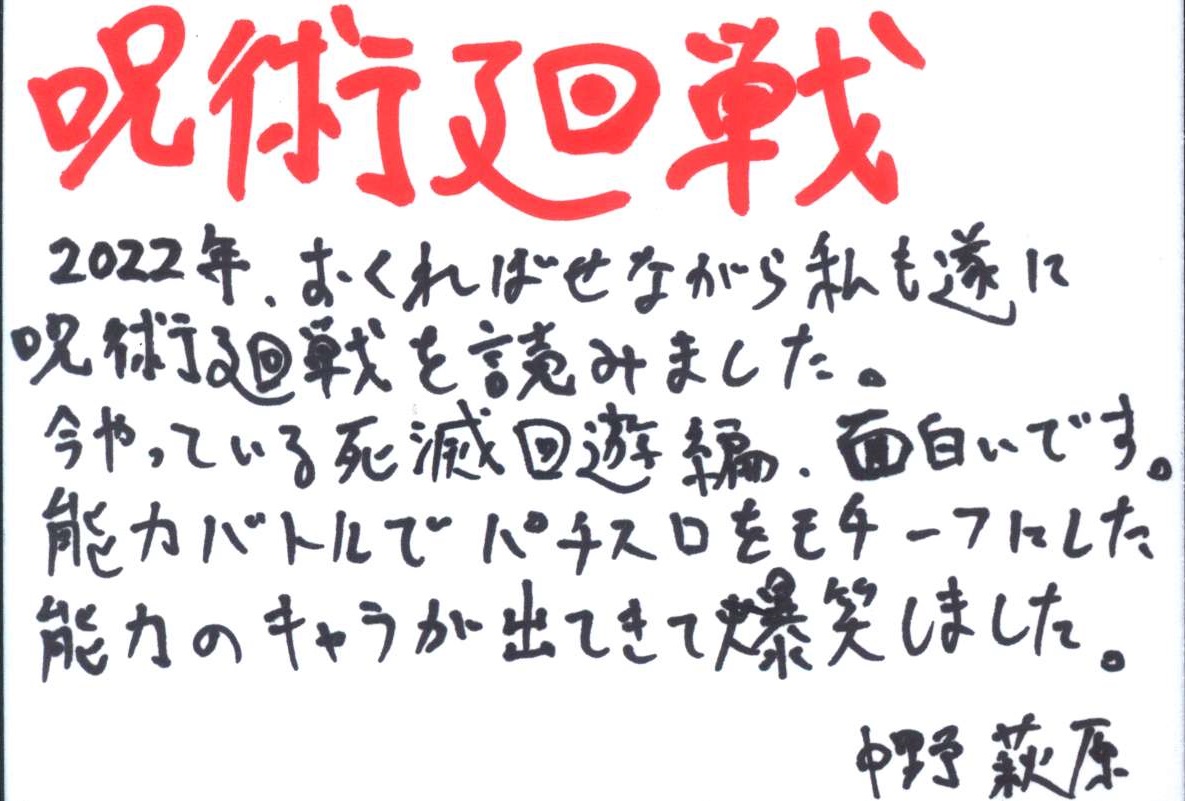 呪術廻戦
2022年、おくればせながら私も遂に
呪術廻戦を読みました。
今やっている死滅回遊編、面白いです。
能力バトルでパチスロをモチーフにした
能力のキャラが出てきて爆笑しました。
中野 萩原